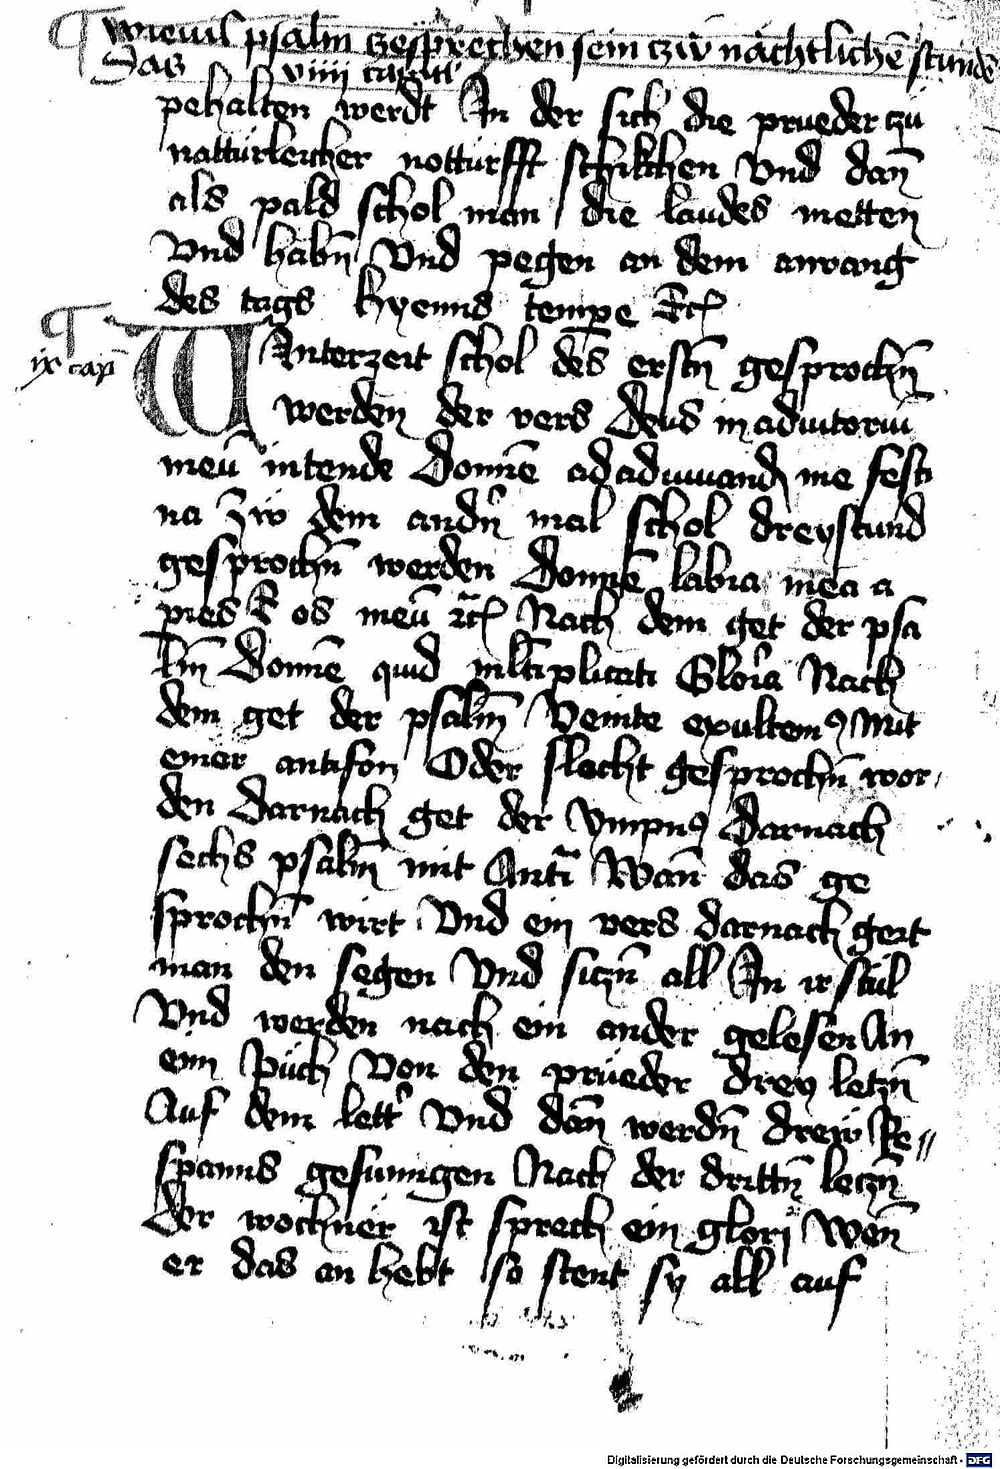 ¶ Wieuil psalm gesprechen sein czw nächtlichē stundē
Das viiii capitl
pehalten werdt In der sich die prueder czu
natturleicher notturfft schikchen Vnd dan̄
als pald schol man die laudes metten
Vnd habn̄ Vnd pegen an dem anvang
des tags hyemis tempe Etc̄
¶ ix capi̅
WInterzeit schol des erstn̄ gesprochn̄
werden der vers Deus in adiutoriū
meū intende Domīe ad adiuuand me festi
na Zw dem andn̄ mal schol dreystund
gesprochn̄ werden Domīe labia mea a
pies Et os meū etc̄ Nach dem get der psa
lm̄ Domīe quid ml̄tiplicati Gloria Nach
dem get der psalm̄ Venite exultemꝰ Mit
einer antifon Oder slecht gesprochn̄ wor
den Darnach get der Ympnꝰ Darnach
sechs psalm̄ mit Antī Wan̄ das ge
sprochn̄ wirt Vnd ein vers darnach geit
man den segen Vnd siczn̄ all In ir stül
Vnd werden nach ein ander gelesen An
eim Püch Von den prüeder drey letzn̄
Auf dem lett Vnd dan̄ werdn̄ drew Re
spanns gesunngen Nach der drittn̄ leczn̄
Der wochner ist sprech ein glori Wen̄
er das an hebt so stent sy all auf
Digitalisierung gefördert durch die Deutsche Forschungsgemeinschaft - DFG